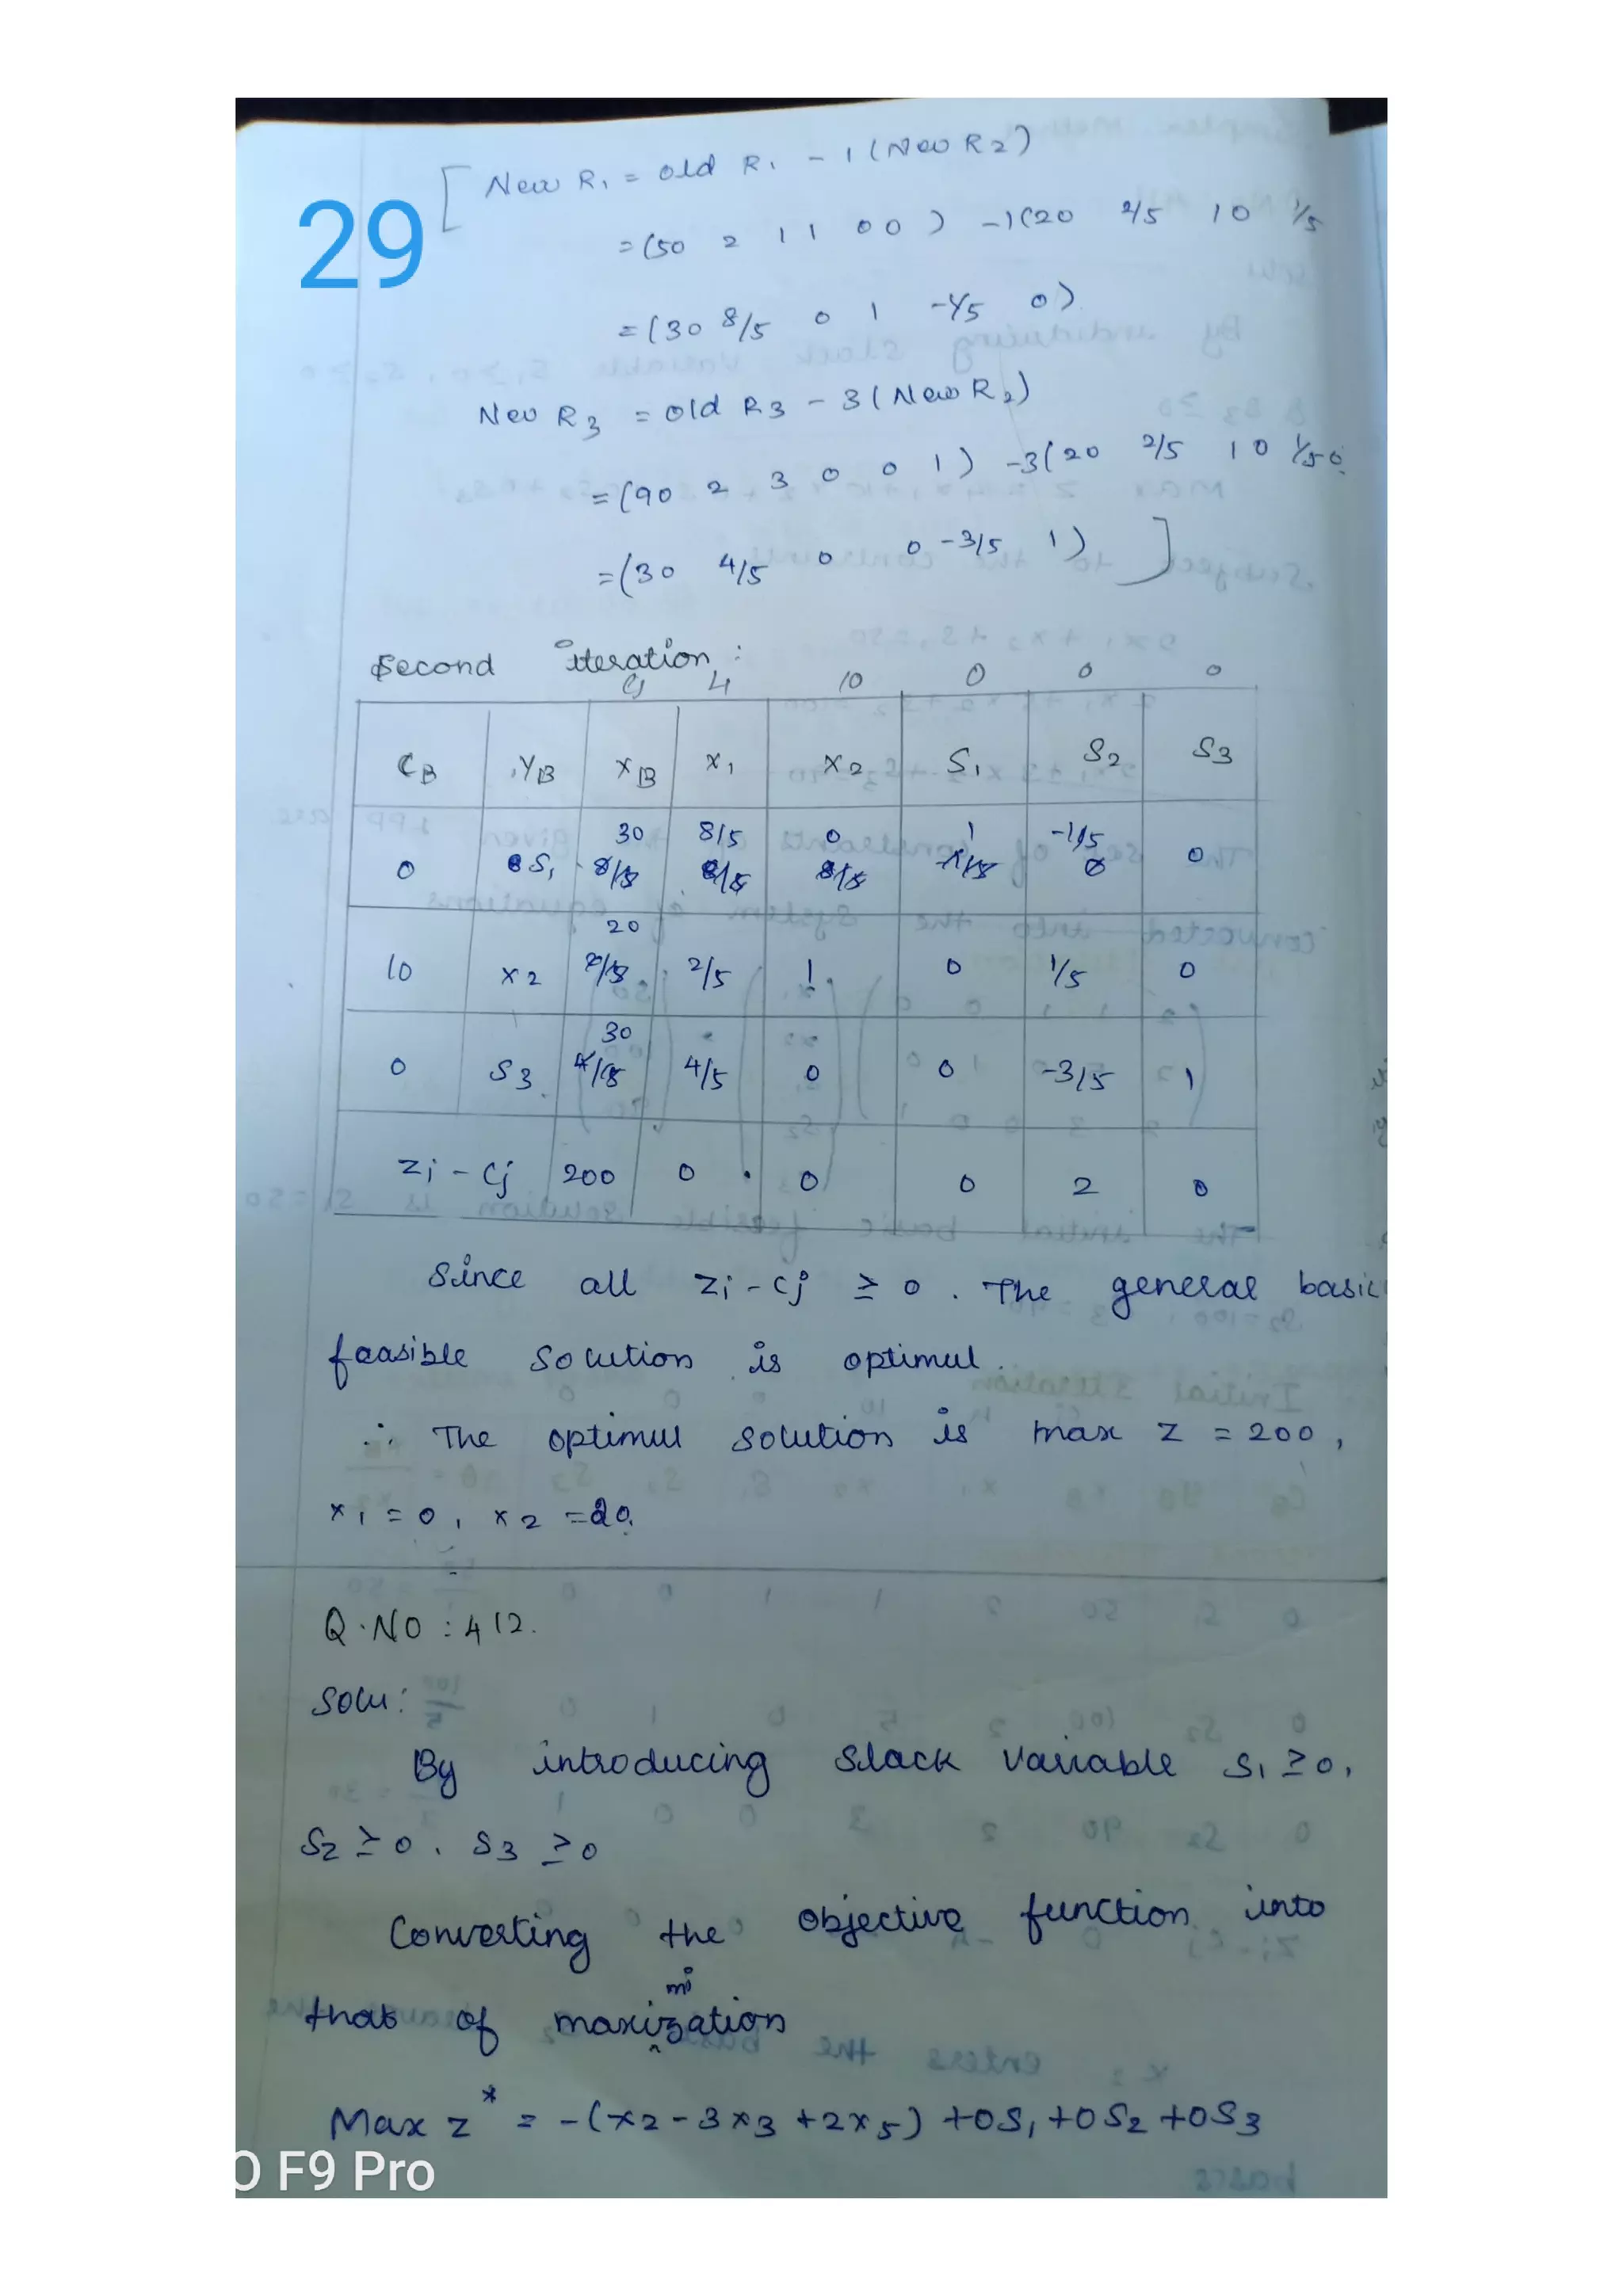 29
[ New R1 = old R1 - 1 (New R2)
= (50 2 1 1 0 0 ) -1(20 2/5 1 0 1/5
= (30 8/5 0 1 -1/5 0)
New R3 = old R3 - 3 (New R2)
= (90 2 3 0 0 1 ) -3(20 2/5 1 0 1/5 0
= (30 4/5 0 0 -3/5 1) ]
Second iteration :
Cj 4 10 0 0 0
CB YB XB x1 x2 S1 S2 S3
0 S1 30 8/5 0 1 -1/5 0
10 x2 20 2/5 1 0 1/5 0
0 S3 30 4/5 0 0 -3/5 1
Zj - Cj 200 0 0 0 2 0
Since all Zj - Cj ≥ 0 . The general basic
feasible solution is optimul.
∴ The optimul solution is max Z = 200 ,
x1 = 0 , x2 = 20.
Q.NO : 412.
Solu :
By introducing slack variable S1 ≥ 0,
S2 ≥ 0 . S3 ≥ 0
Converting the objective function into
that of maximization
Max Z* = -(x2 - 3x3 + 2x5) + 0S1 + 0S2 + 0S3
O F9 Pro